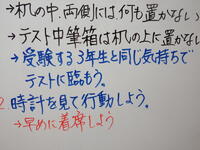 →机の中、両側には何も置かない
→テスト中筆箱は机の上に置かない
→受験する3年生と同じ気持ちで
テストに臨もう。
2 時計を見て行動しよう。
→早めに着席しよう